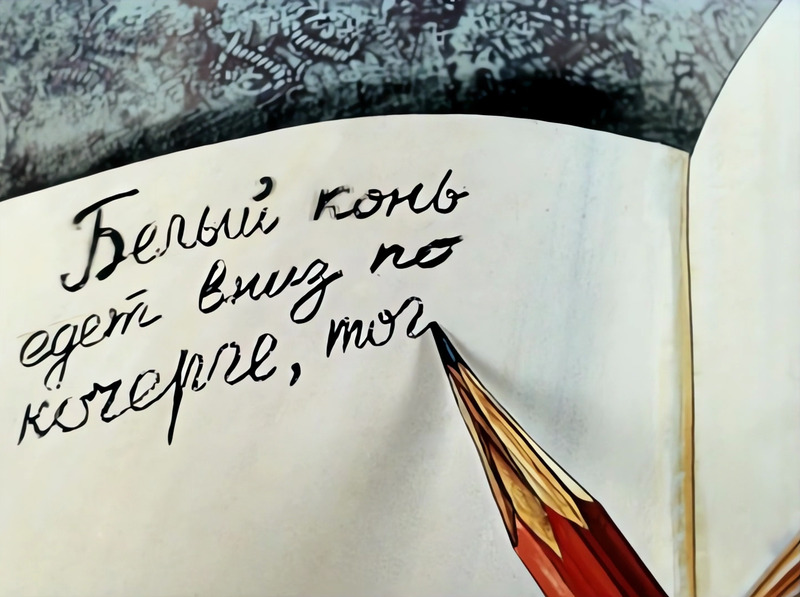 Белый конь
едет вниз по
кочерге, тог